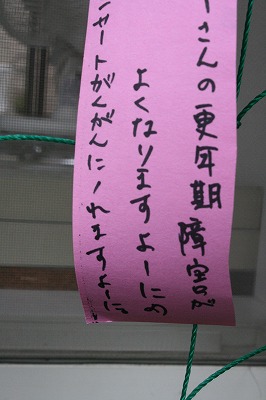 ーさんの更年期障害が
よくなりますよーにの
ートがくがんに入れますよーに。